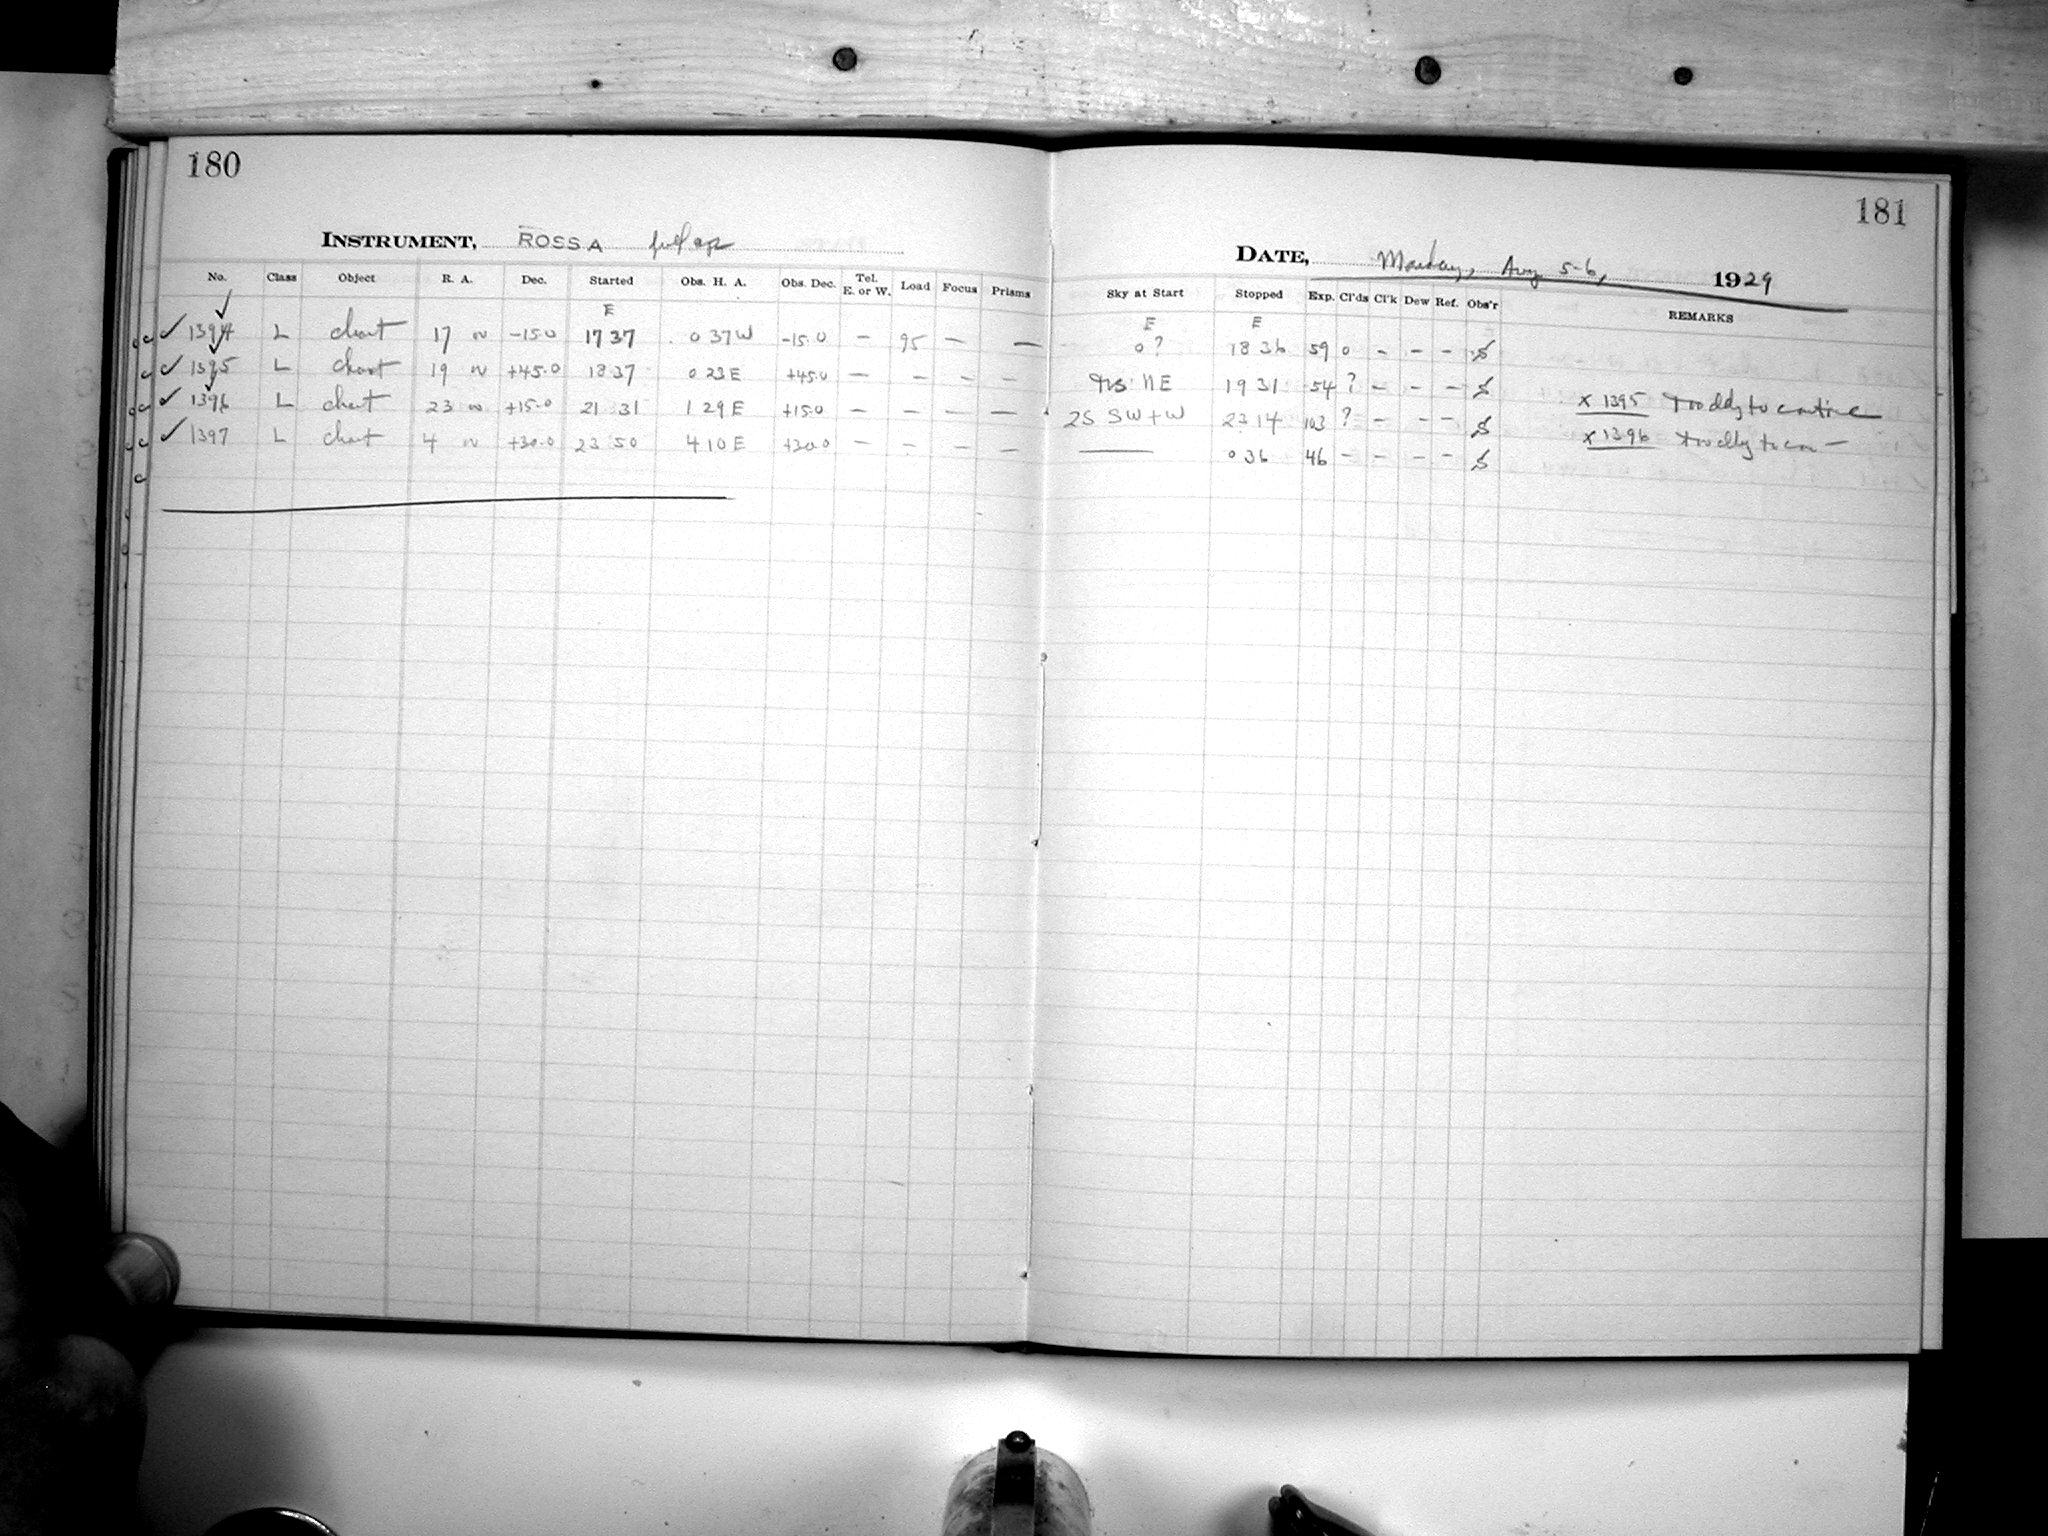 180
INSTRUMENT, ROSS A full ap
No. Class Object R. A. Dec. Started Obs. H. A. Obs. Dec. Tel. E. or W. Load Focus Prisms
E
✓ 1394 L chart 17 ~ -15.0 17 37 0 37 W -15.0 — 95 — —
✓ 1395 L chart 19 ~ +45.0 18 37 0 23 E +45.0 — — — —
✓ 1396 L chart 23 ~ +15.0 21 31 1 29 E +15.0 — — — —
✓ 1397 L chart 4 ~ +30.0 23 50 4 10 E +30.0 — — — —
181
DATE, Monday, Aug 5-6, 1929
Sky at Start Stopped Exp. Cl'ds Cl'k Dew Ref. Obs'r REMARKS
E E
0? 18 36 59 0 - - - S
NE 19 31 54 ? - - - S x 1395 Too cldy to continue
2S SW + W 23 14 103 ? - - - S x 1396 Too cldy to con—
—— 0 36 46 - - - - S